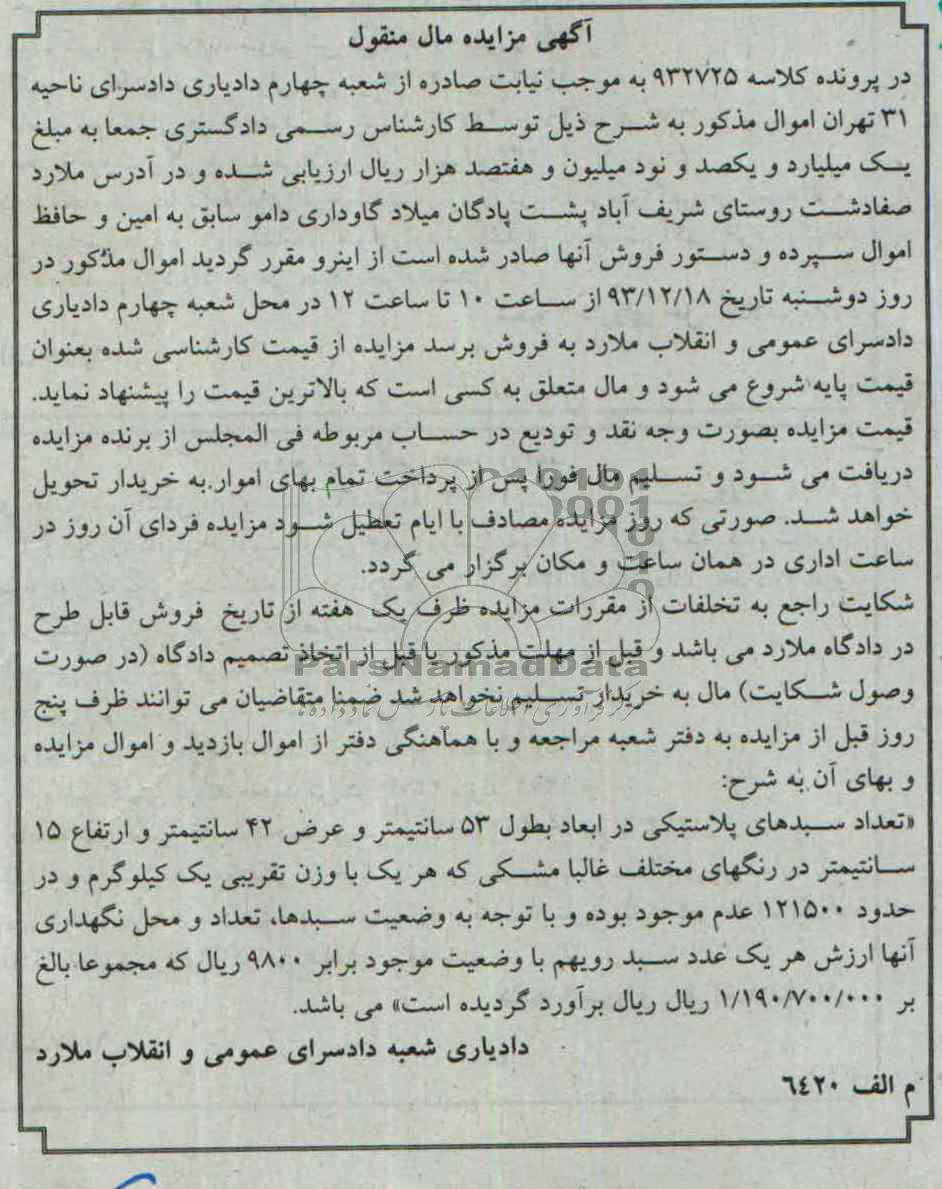 آگهی مزایده مال منقول
در پرونده کلاسه ۹۳۲۷۲۵ به موجب نیابت صادره از شعبه چهارم دادیاری دادسرای ناحیه
۳۱ تهران اموال مذکور به شرح ذیل توسط کارشناس رسمی دادگستری جمعا به مبلغ
یک میلیارد و یکصد و نود میلیون و هفتصد هزار ریال ارزیابی شده و در آدرس ملارد
صفادشت روستای شریف آباد پشت پادگان میلاد گاوداری دامو سابق به امین و حافظ
اموال سپرده و دستور فروش آنها صادر شده است از اینرو مقرر گردید اموال مذکور در
روز دوشنبه تاریخ ۹۳/۱۲/۱۸ از ساعت ۱۰ تا ساعت ۱۲ در محل شعبه چهارم دادیاری
دادسرای عمومی و انقلاب ملارد به فروش برسد مزایده از قیمت کارشناسی شده بعنوان
قیمت پایه شروع می شود و مال متعلق به کسی است که بالاترین قیمت را پیشنهاد نماید.
قیمت مزایده بصورت وجه نقد و تودیع در حساب مربوطه فی المجلس از برنده مزایده
دریافت می شود و تسلیم مال فورا پس از پرداخت تمام بهای اموار به خریدار تحویل
خواهد شد. صورتی که روز مزایده مصادف با ایام تعطیل شود مزایده فردای آن روز در
ساعت اداری در همان ساعت و مکان برگزار می گردد.
شکایت راجع به تخلفات از مقررات مزایده ظرف یک هفته از تاریخ فروش قابل طرح
در دادگاه ملارد می باشد و قبل از مهلت مذکور یا قبل از اتخاذ تصمیم دادگاه (در صورت
وصول شکایت) مال به خریدار تسلیم نخواهد شد ضمنا متقاضیان می توانند ظرف پنج
روز قبل از مزایده به دفتر شعبه مراجعه و با هماهنگی دفتر از اموال بازدید و اموال مزایده
و بهای آن به شرح:
«تعداد سبدهای پلاستیکی در ابعاد بطول ۵۳ سانتیمتر و عرض ۴۲ سانتیمتر و ارتفاع ۱۵
سانتیمتر در رنگهای مختلف غالبا مشکی که هر یک با وزن تقریبی یک کیلوگرم و در
حدود ۱۲۱۵۰۰ عدم موجود بوده و با توجه به وضعیت سبدها، تعداد و محل نگهداری
آنها ارزش هر یک عدد سبد رویهم با وضعیت موجود برابر ۹۸۰۰ ریال که مجموعا بالغ
بر ۱/۱۹۰/۷۰۰/۰۰۰ ریال ریال برآورد گردیده است» می باشد.
دادیاری شعبه دادسرای عمومی و انقلاب ملارد
م الف ۶۴۲۰
ParsNamadData